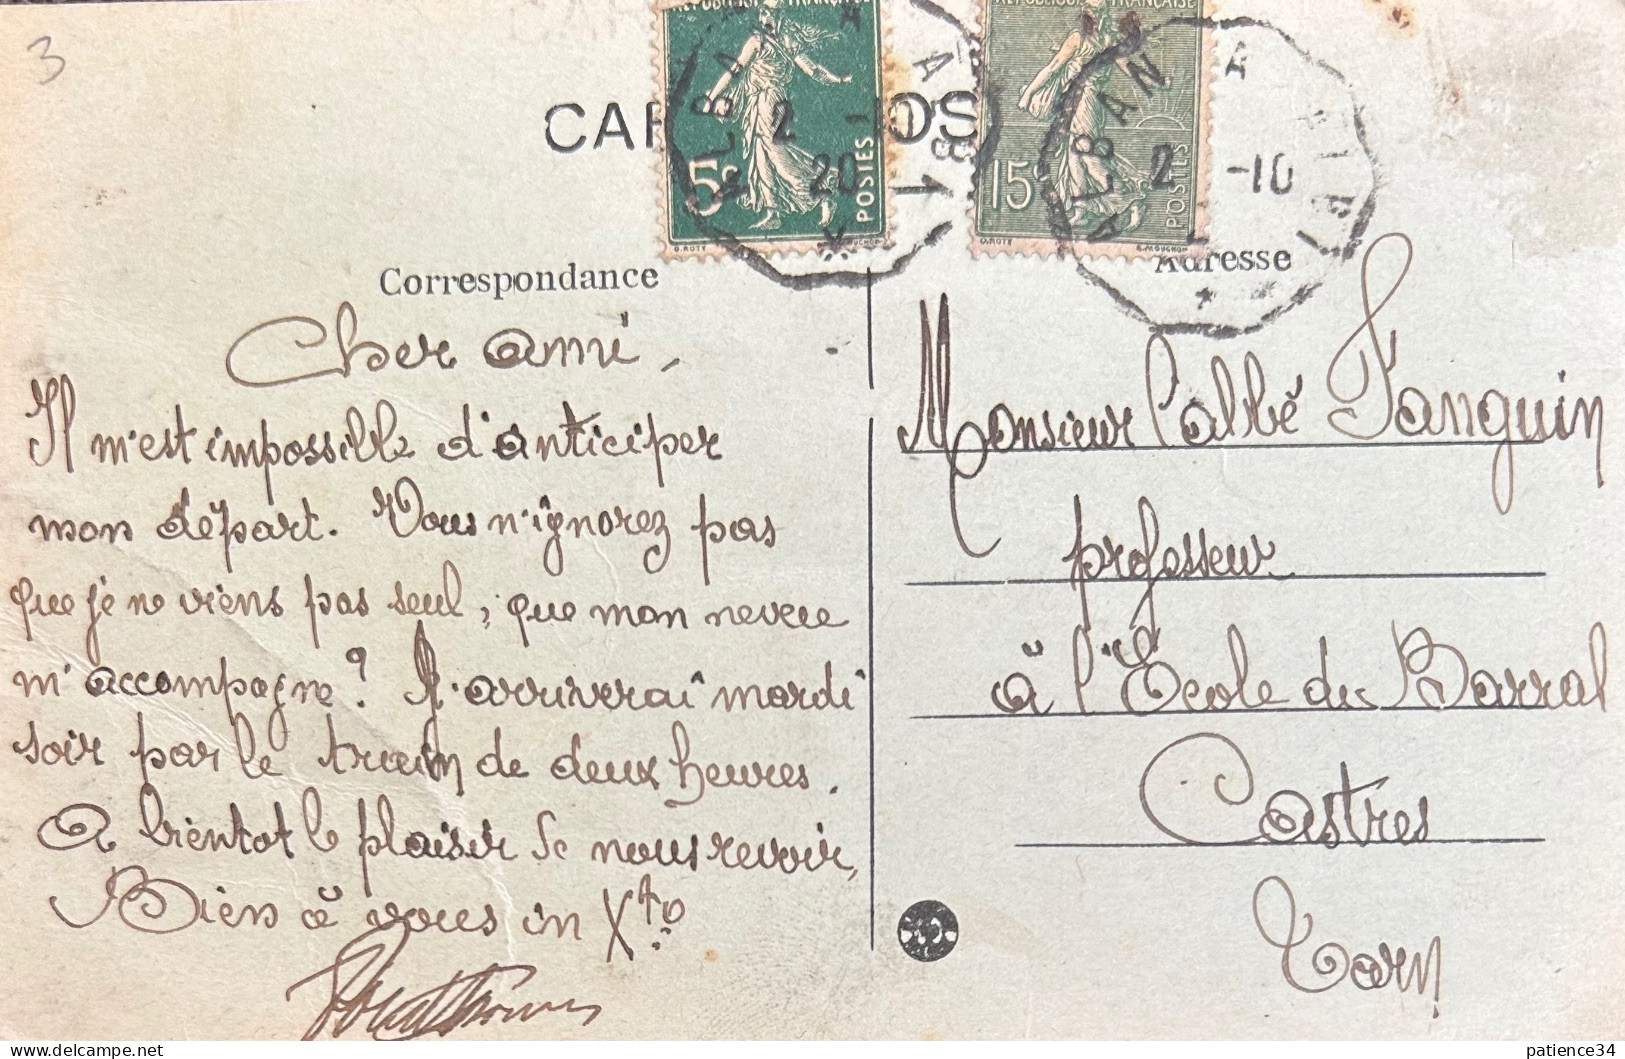 3
CAR
OS
REPUBLIQUE FRANÇAISE
5c
POSTES
O. ROTY
15c
POSTES
O. ROTY
E. MOUCHON
ALBAN A ALBI
2 -10
20
ALBAN A ALBI
2 -10
Correspondance
Adresse
Cher ami,
Il m'est impossible d'anticiper
mon départ. Vous n'ignorez pas
que je ne viens pas seul, que mon neveu
m'accompagne? J'arriverai mardi
soir par le train de deux heures.
A bientot le plaisir de nous revoir,
Bien à vous in Xto
Monsieur l'abbé Fanguin
professeur
à l'Ecole de Barral
Castres
Tarn
www.delcampe.net
patience34